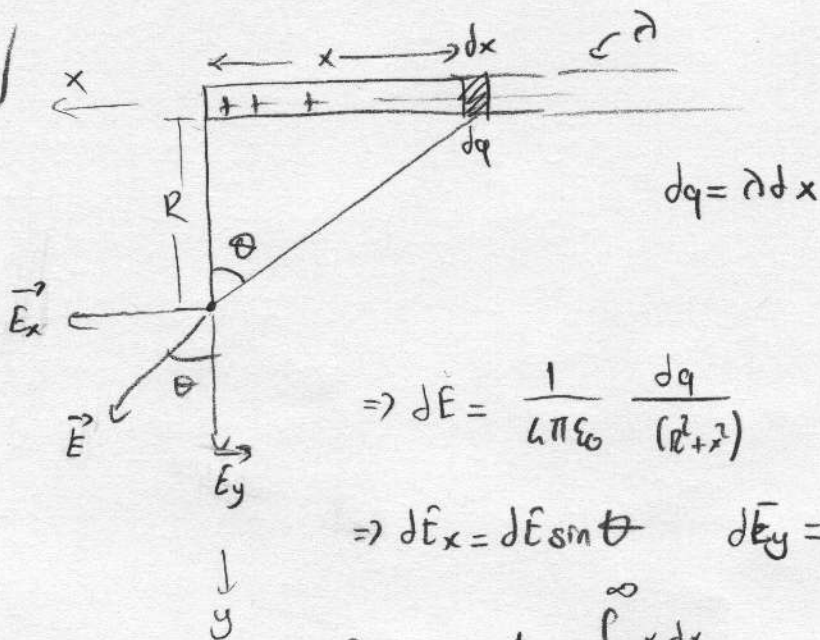 x dx λ
x
+ + +
dq
dq = λdx
R
θ
E⃗x
θ
E⃗
E⃗y
y
=> dE = 1/4πε₀ dq/(R²+x²)
=> dEx = dE sin θ dEy =
∞
∫ x dx